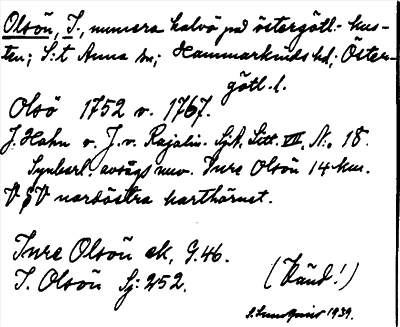 Olsön, I., numera halvö på östergötl.-kus-
ten; S:t Anna sn; Hammarkinds hd; Öster-
götl. l.
Olsö 1752 v. 1767.
J. Hahn v. J. v. Rajalin. SjA, Litt. VII, No 18.
Synbarl. avsågs nuv. Inre Olsön 14 km.
V nordöstra karthörnet.
Inre Olsön ek, G.46.
I. Olsön Sj: 252.
(Känd!)
S. Lundqvist 1939.